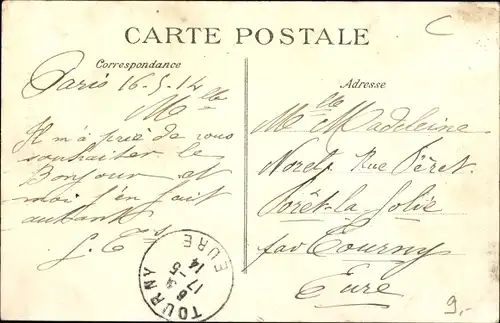 C
CARTE POSTALE
Correspondance
Paris 16-5-14
Mlle
Il m'a prié de vous
souhaiter le
Bonjour et
moi j'en fait
autant
Adresse
Mlle Madeleine
Rue Péret
Forêt-la-Folie
par Tourny
Eure
TOURNY
EURE
17-5
14
9.-